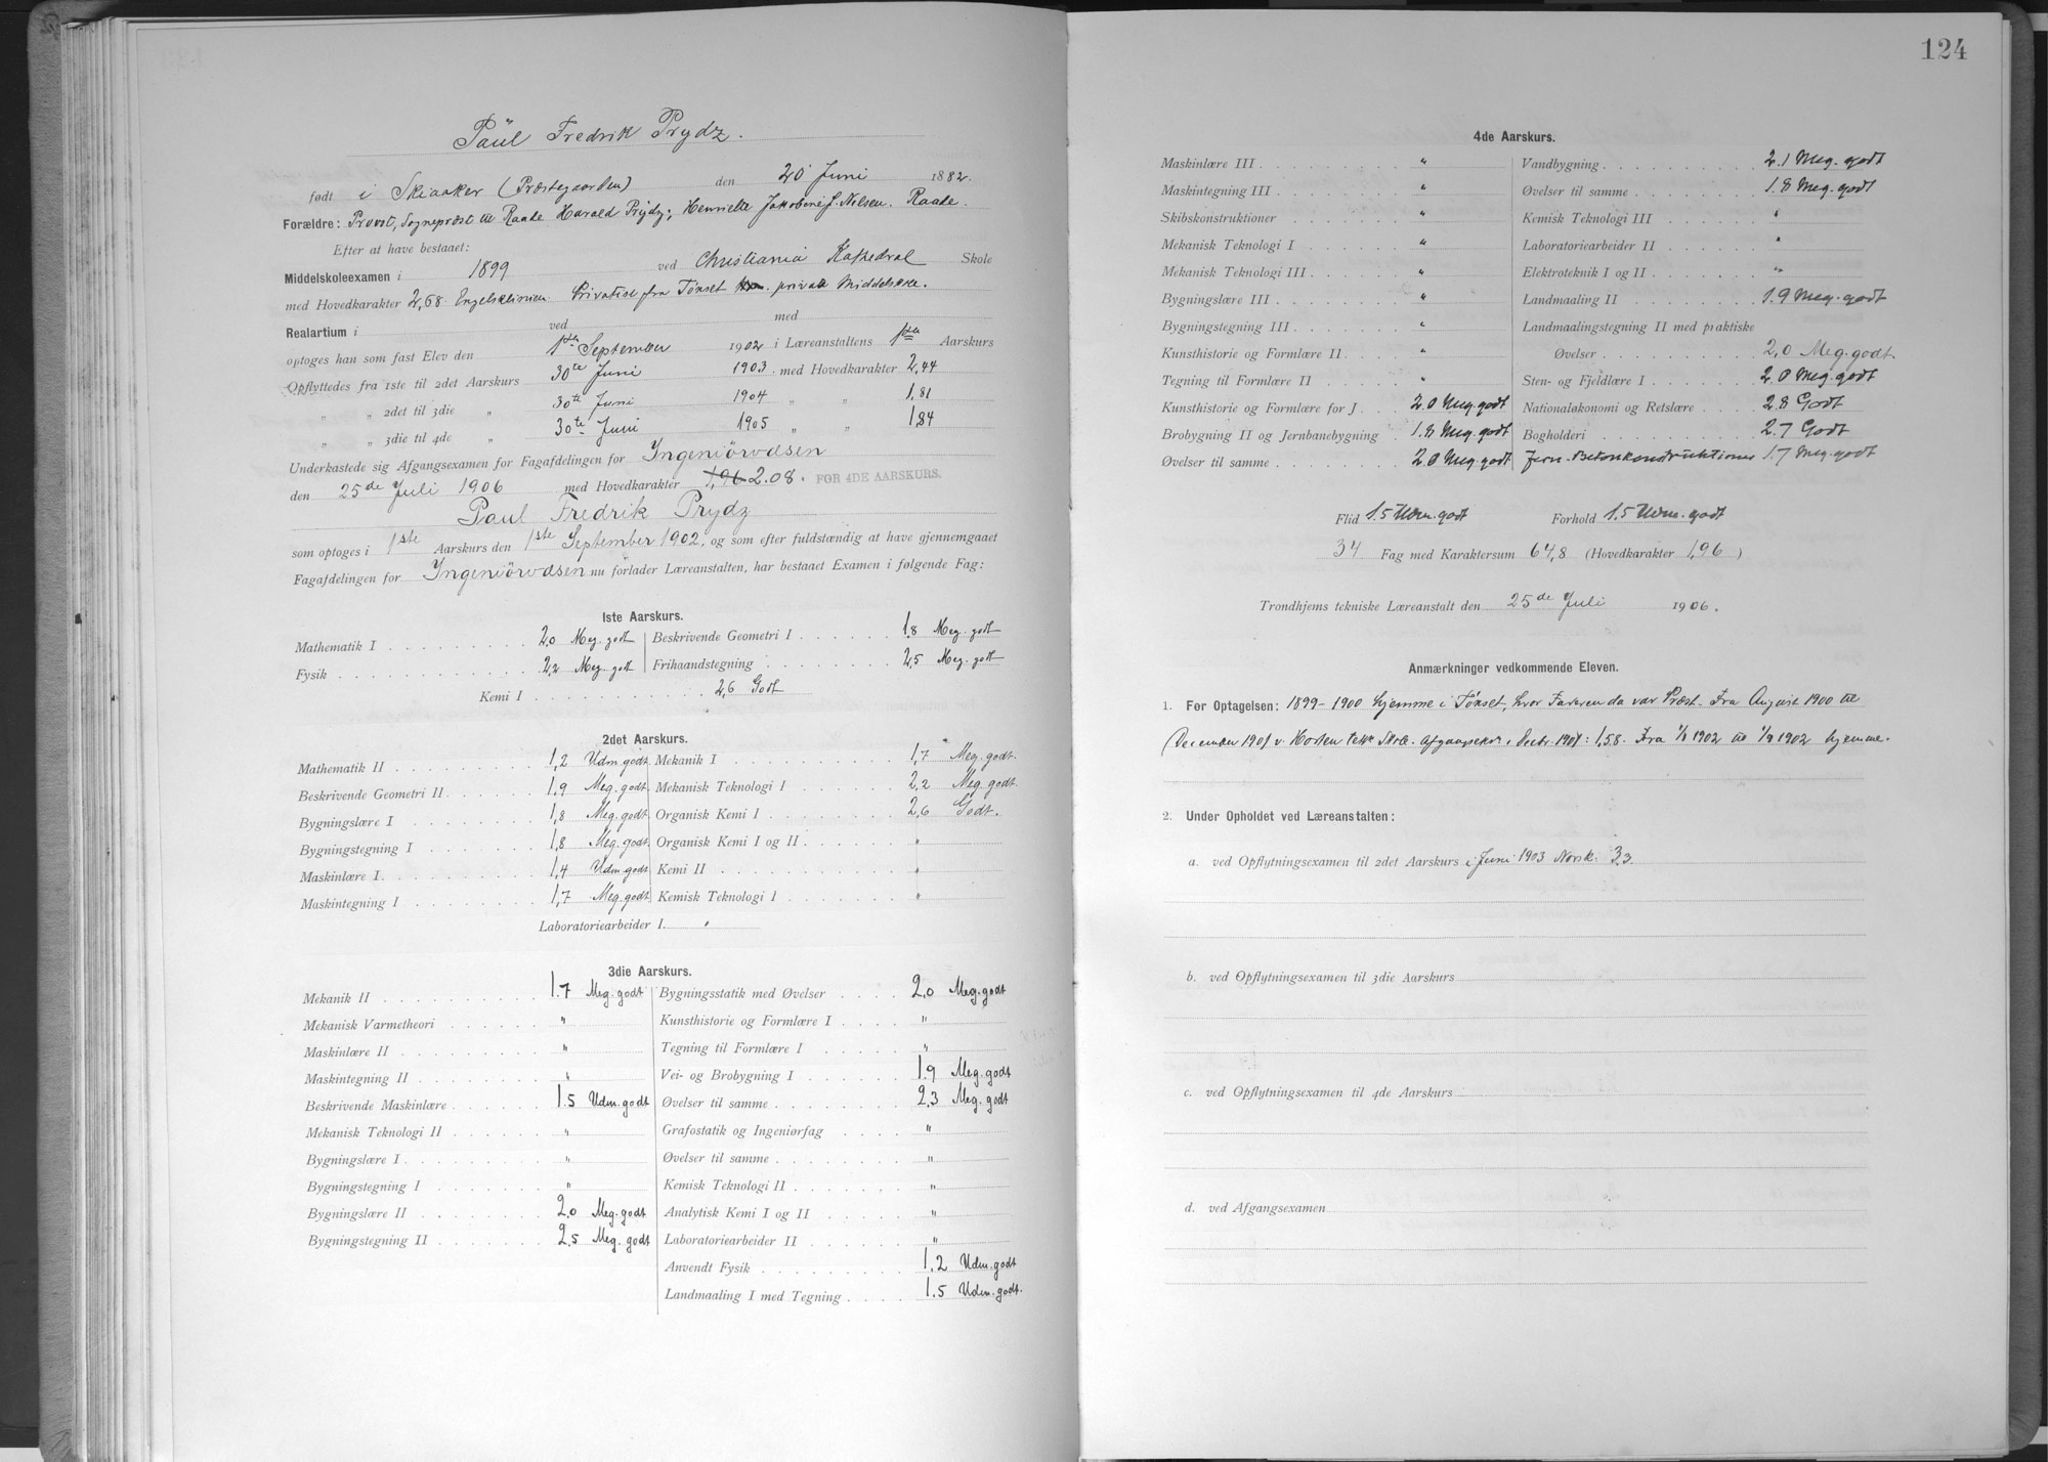 Paül Fredrik Prydz.
født i Skiaaker (Præstegaarden) den 20 Juni 1882.
Forældre: Provst, Sogneprest til Raade Harald Prydz; Henriette Jakobine f. Nilsen. Raade.
Efter at have bestaaet:
Middelskoleexamen i 1899 ved Christiania Kathedral Skole
med Hovedkarakter 2,68. Engelsklinien. Privatist fra Tönset private Middelskole.
Realartium i ved med
optoges han som fast Elev den 1ste September 1902 i Læreanstaltens 1ste Aarskurs
Opflyttedes fra 1ste til 2det Aarskurs 30te Juni 1903 . med Hovedkarakter 2,44
„ „ 2det til 3die „ 30te Juni 1904 „ „ 1,81
„ „ 3die til 4de „ 30te Juni 1905 „ „ 1,84
Underkastede sig Afgangsexamen for Fagafdelingen for Ingeniörvæsen
den 25de Juli 1906 med Hovedkarakter 1,96 2.08. FOR 4DE AARSKURS.
Paul Fredrik Prydz
som optoges i 1ste Aarskurs den 1ste September 1902, og som efter fuldstændig at have gjennemgaaet
Fagafdelingen for Ingeniörvæsen nu forlader Læreanstalten, har bestaaet Examen i følgende Fag:
1ste Aarskurs.
Mathematik I 2,0 Meg. godt Beskrivende Geometri I 1,8 Meg. godt
Fysik 2,2 Meg. godt Frihaandstegning 2,5 Meg. godt
Kemi I 2,6 Godt
2det Aarskurs.
Mathematik II 1,2 Udm. godt Mekanik I 1,7 Meg. godt.
Beskrivende Geometri II 1,9 Meg. godt. Mekanisk Teknologi I 2,2 Meg. godt.
Bygningslære I 1,8 Meg. godt Organisk Kemi I 2,6 Godt.
Bygningstegning I 1,8 Meg. godt Organisk Kemi I og II "
Maskinlære I 1,4 Udm. godt Kemi II "
Maskintegning I 1,7 Meg. godt Kemisk Teknologi I "
Laboratoriearbeider I. "
3die Aarskurs.
Mekanik II 1.7 Meg. godt Bygningsstatik med Øvelser 2.0 Meg. godt
Mekanisk Varmetheori " Kunsthistorie og Formlære I "
Maskinlære II " Tegning til Formlære I "
Maskintegning II " Vei- og Brobygning I 1.9 Meg. godt
Beskrivende Maskinlære 1.5 Udm. godt Øvelser til samme 2.3 Meg. godt
Mekanisk Teknologi II " Grafostatik og Ingeniørfag "
Bygningslære I " Øvelser til samme "
Bygningstegning I " Kemisk Teknologi II "
Bygningslære II 2.0 Meg. godt Analytisk Kemi I og II "
Bygningstegning II 2.5 Meg. godt Laboratoriearbeider II "
Anvendt Fysik 1.2 Udm. godt
Landmaaling I med Tegning 1.5 Udm. godt.
124
4de Aarskurs.
Maskinlære III " Vandbygning 2.1 Meg. godt
Maskintegning III " Øvelser til samme 1.8 Meg. godt
Skibskonstruktioner " Kemisk Teknologi III "
Mekanisk Teknologi I " Laboratoriearbeider II "
Mekanisk Teknologi III " Elektroteknik I og II "
Bygningslære III " Landmaaling II 1.9 Meg. godt
Bygningstegning III " Landmaalingstegning II med praktiske
Kunsthistorie og Formlære II " Øvelser 2,0 Meg. godt.
Tegning til Formlære II " Sten- og Fjeldlære I 2.0 Meg. godt
Kunsthistorie og Formlære for J. 2.0 Meg. godt Nationaløkonomi og Retslære 2.8 Godt
Brobygning II og Jernbanebygning 1.8 Meg. godt Bogholderi 2.7 Godt
Øvelser til samme 2.0 Meg. godt Jern-Betonkonstruktioner 1.7 Meg. godt
Flid 1.5 Udm. godt Forhold 1.5 Udm. godt
34 Fag med Karaktersum 64,8 (Hovedkarakter 1,96)
Trondhjems tekniske Læreanstalt den 25de Juli 1906.
Anmærkninger vedkommende Eleven.
1. Før Optagelsen: 1899-1900 hjemme i Tönset, hvor Faderen da var Præst. Fra August 1900 til
December 1901 v. Horten tekn. Skole. Afgangsekr. i Decbr. 1901: 1,58. Fra 1/1 1902 til 1/9 1902 hjemme.
2. Under Opholdet ved Læreanstalten:
a. ved Opflytningsexamen til 2det Aarskurs i Juni 1903 Norsk 3,3.
b. ved Opflytningsexamen til 3die Aarskurs
c. ved Opflytningsexamen til 4de Aarskurs
d. ved Afgangsexamen